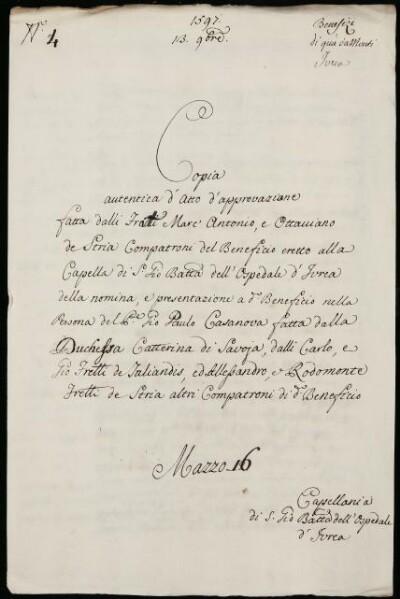 N.° 4
1597.
13. 9bre.
Benefizi
di qua da Monti
Ivrea
Copia
autentica d'Atto d'approvazione
fatta dalli Fratti Marc'Antonio, e Ottaviano
de Stria Compatroni del Beneficio eretto alla
Capella di S. Gio Batta dell'Ospedale d'Ivrea
della nomina, e presentazione a d.° Beneficio nella
Persona del P.e Gio Paulo Casanova fatta dalla
Duchessa Catterina di Savoja, dalli Carlo, e
Gio Fretti de Italiandis, ed Alessandro, e Rodomonte
Fretti de Stria altri Compatroni di d.° Beneficio
Mazzo 16
Cappellania
di S. Gio Batta dell'Ospedale
d'Ivrea